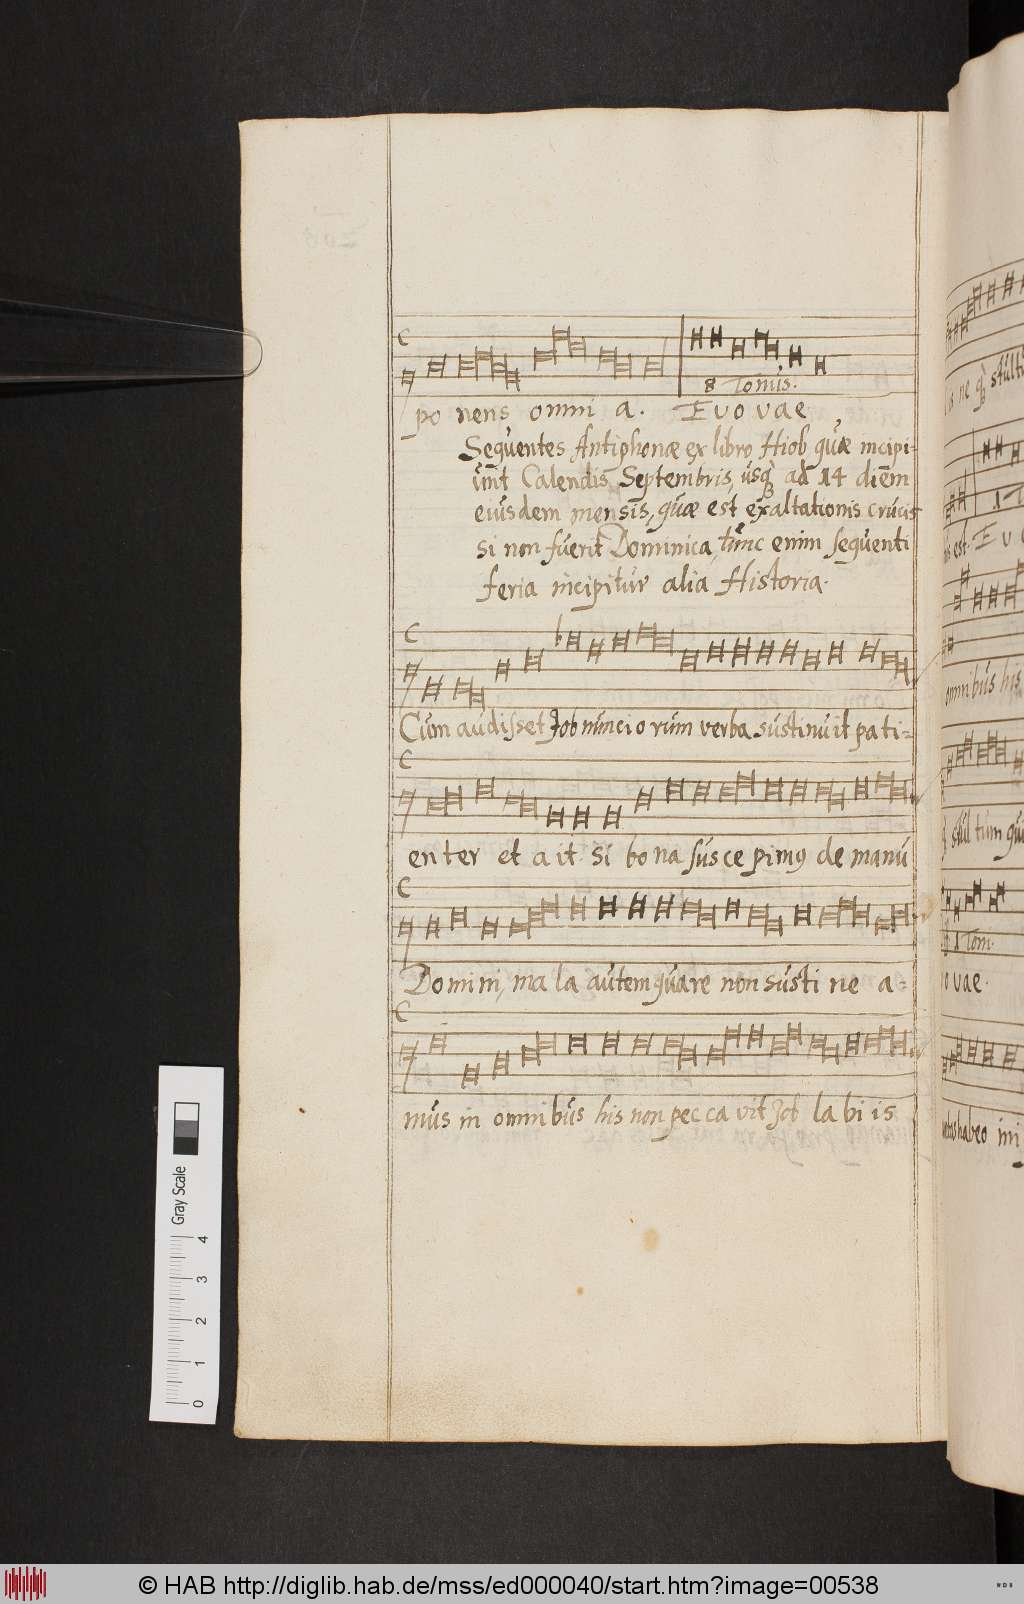 C
8 Tomus.
po nens omni a. Evovae
Sequentes Antiphonæ ex libro Hiob quæ incipi-
unt Calendis Septembris, usq ad 14 diem
eiusdem mensis, quæ est exaltationis crucis
si non fuerit Dominica, tunc enim sequenti
feria incipitur alia Historia.
C
Cum audisset Job nuncio rum verba sustinuit pa ti-
C
en ter et a it si bo na sus ce pimus de manu
C
Do mi ni, ma la autem quare non susti ne a-
C
mus in omnibus his non pec ca vit Job la bi is
ne q stult
1
us est. Evo
omnibus his
stul tum qu
1 Tom.
o vae.
habeo mi
Gray Scale
4
3
2
1
0
© HAB http://diglib.hab.de/mss/ed000040/start.htm?image=00538
WDB